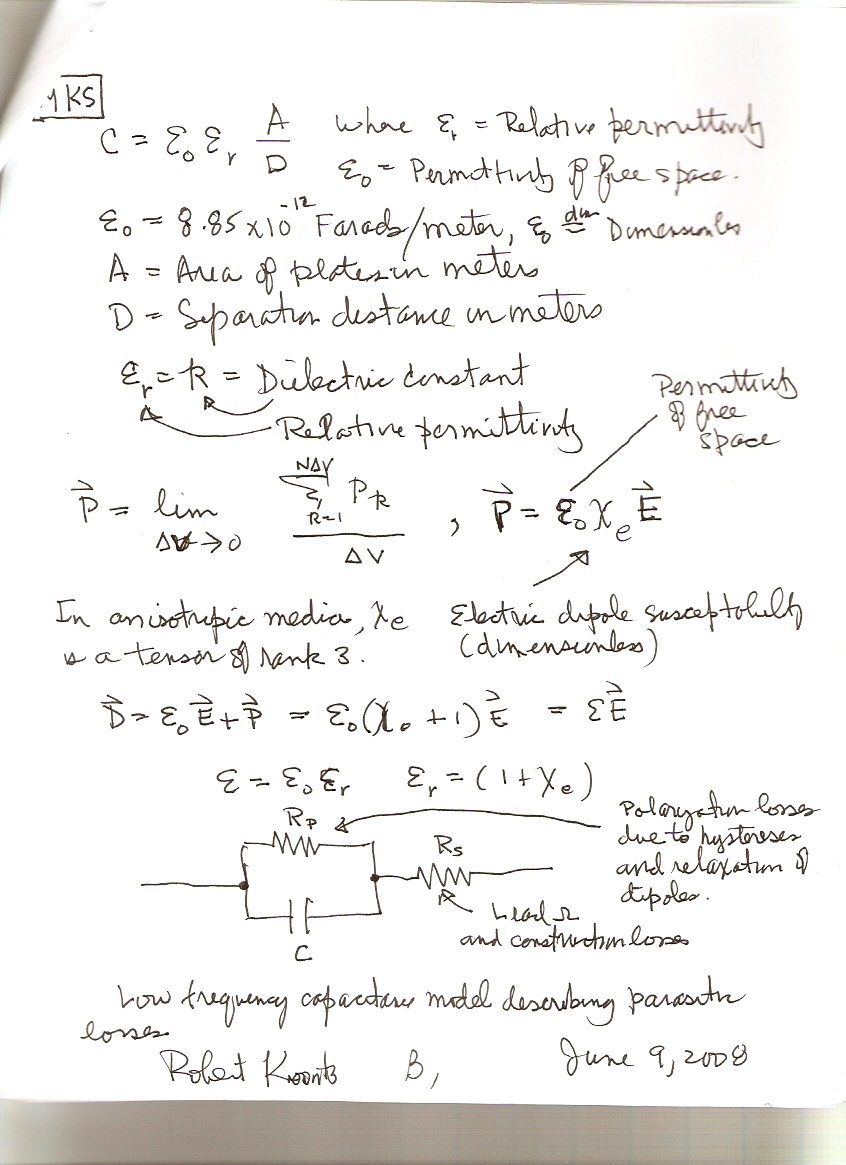 MKS
C = ε₀ εᵣ A/D where εᵣ = Relative permittivity
ε₀ = Permittivity of free space.
ε₀ = 8.85 x10⁻¹² Farads/meter, Dimensionless
A = Area of plates in meters
D = Separation distance in meters
εᵣ = k = Dielectric constant
Relative permittivity
Permittivity
of free
space
P⃗ = lim ΔV→0 Σ k=1 NΔV Pk / ΔV , P⃗ = ε₀ χe E⃗
In anisotropic media, χe
is a tensor of rank 3.
Electric dipole susceptibility
(dimensionless)
D⃗ = ε₀ E⃗ + P⃗ = ε₀(χₒ + 1) E⃗ = ε E⃗
ε = ε₀ εᵣ εᵣ = (1 + χe)
Rp
Polarization losses
due to hystereses
and relaxation of
dipoles.
Rs
C
Lead Ω
and construction losses
Low frequency capacitance model describing parasitic
losses
Robert Koontz B, June 9, 2008